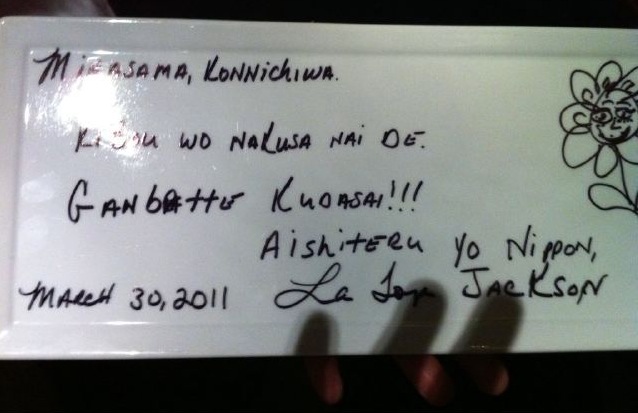 Minasama, Konnichiwa.
Kibou wo nakusa nai de.
Ganbatte Kudasai!!!
Aishiteru yo Nippon,
March 30, 2011 La Toya Jackson